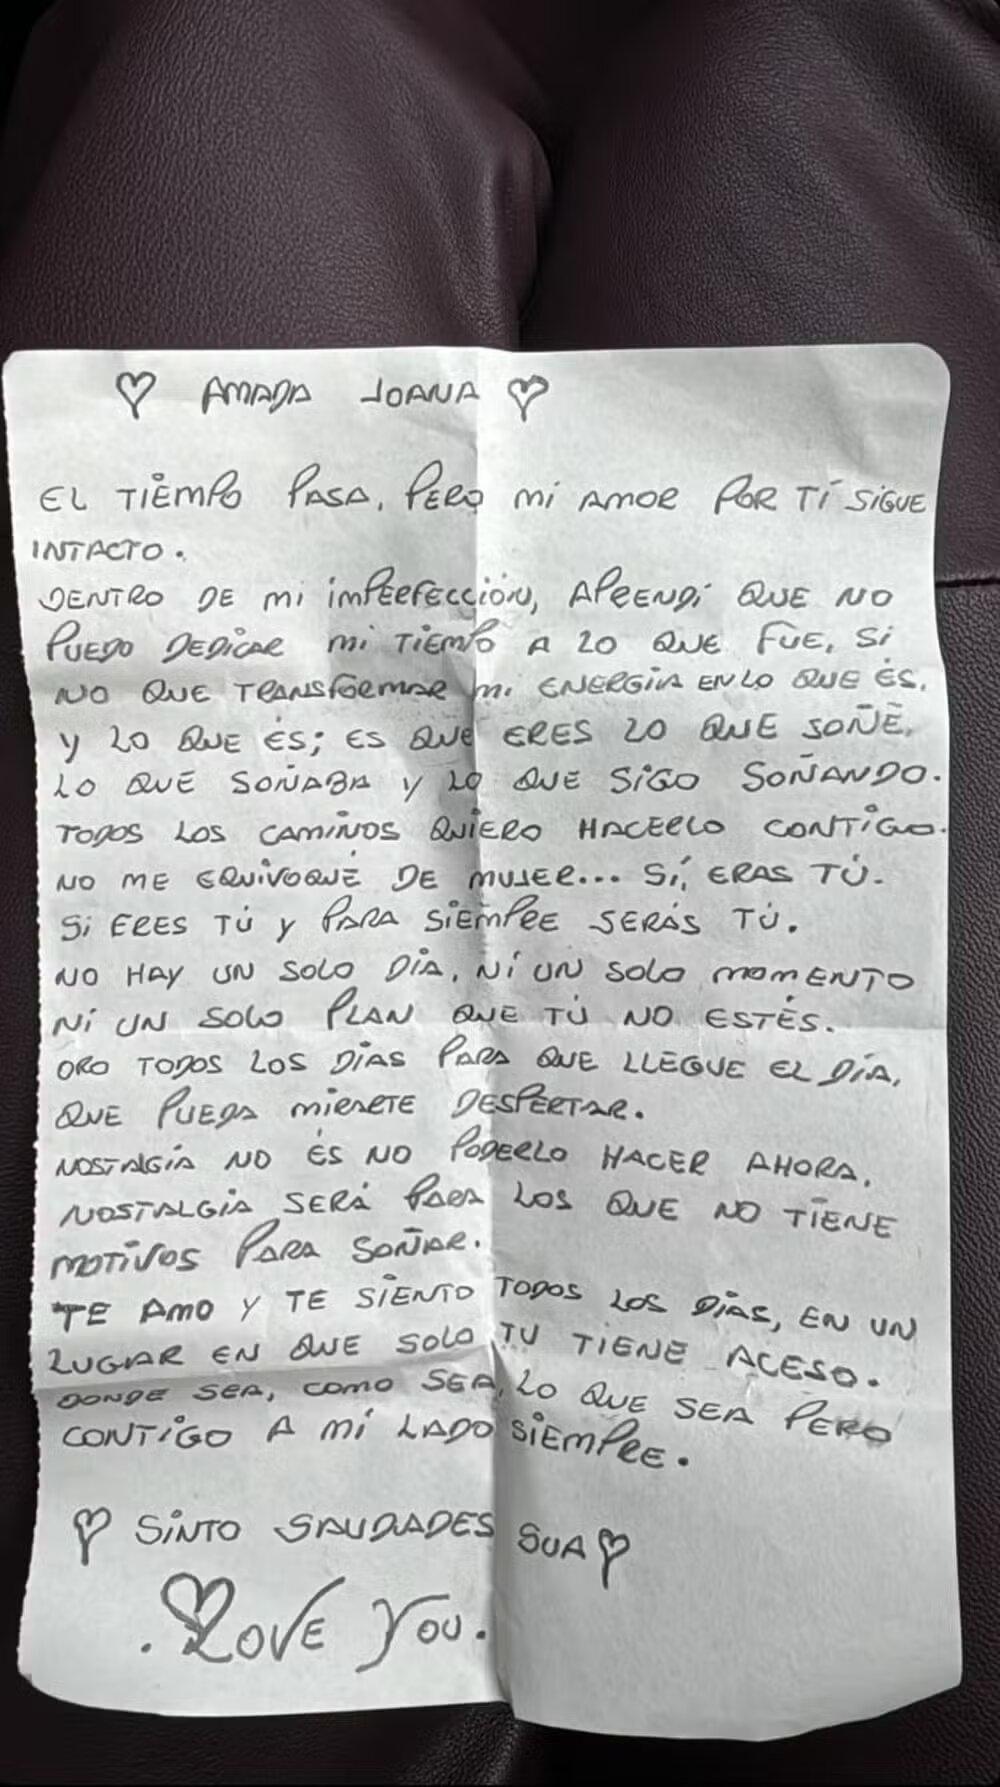 ♡ AMADA JOANA ♡
EL TIEMPO PASA, PERO MI AMOR POR TÍ SIGUE
INTACTO.
DENTRO DE MI IMPERFECCIÓN, APRENDÍ QUE NO
PUEDO DEDICAR MI TIEMPO A LO QUE FUE, SI
NO QUE TRANSFORMAR MI ENERGÍA EN LO QUE ÉS.
Y LO QUE ÉS; ES QUE ERES LO QUE SOÑÉ,
LO QUE SOÑABA Y LO QUE SIGO SOÑANDO.
TODOS LOS CAMINOS QUIERO HACERLO CONTIGO.
NO ME EQUIVOQUÉ DE MUJER... SÍ, ERAS TÚ.
SI ERES TÚ Y PARA SIEMPRE SERÁS TÚ.
NO HAY UN SOLO DÍA, NI UN SOLO MOMENTO
NI UN SOLO PLAN QUE TÚ NO ESTÉS.
ORO TODOS LOS DÍAS PARA QUE LLEGUE EL DÍA,
QUE PUEDA MIRARTE DESPERTAR.
NOSTALGÍA NO ÉS NO PODERLO HACER AHORA,
NOSTALGIA SERÁ PARA LOS QUE NO TIENE
MOTIVOS PARA SOÑAR.
TE AMO Y TE SIENTO TODOS LOS DÍAS, EN UN
LUGAR EN QUE SOLO TU TIENE ACESO.
DONDE SEA, COMO SEA, LO QUE SEA PERO
CONTIGO A MI LADO SIEMPRE.
♡ SINTO SAUDADES SUA ♡
. LOVE YOU.